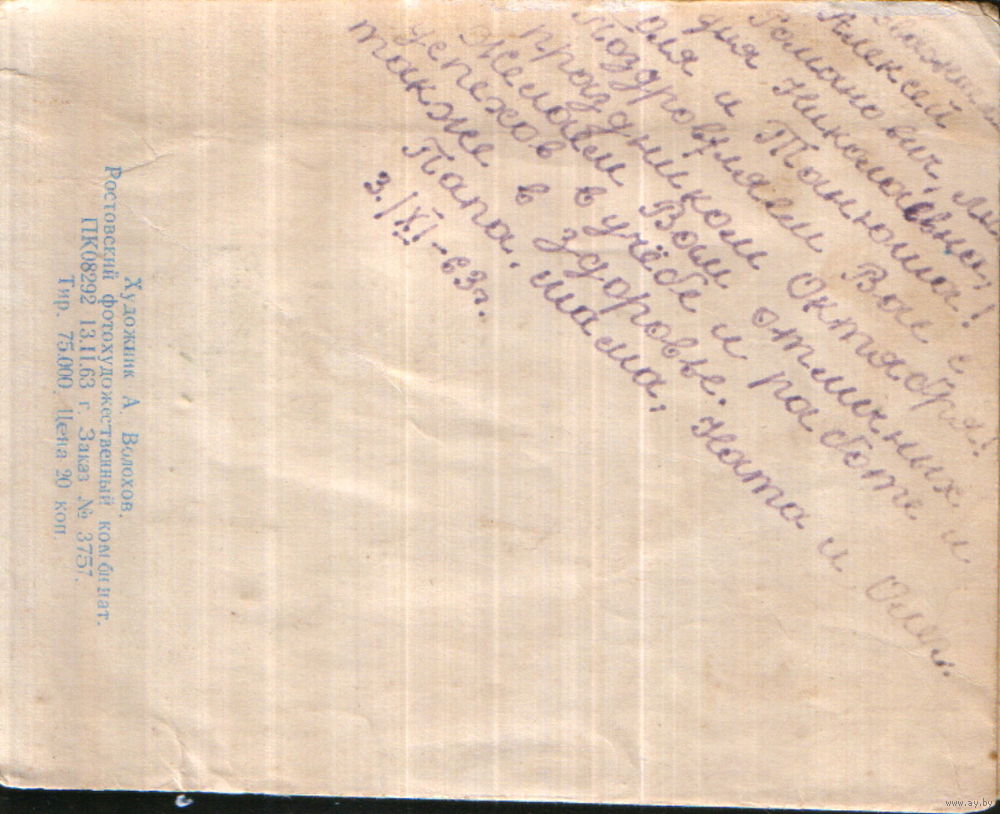 Алексей
Романович,
дия Николаевна,
Оля и Танюша!
Поздровляем Вас с
праздником Октября!
Желаем Вам отличных
успехов в учёбе и работе и
также в здоровье.
Папа, мама, Ната и Олег.
3./XI-63г.
Художник А. Волохов.
Ростовский фотохудожественный комбинат.
ПК08292 13.II.63 г. Заказ № 3757.
Тир. 75.000. Цена 20 коп
www.ay.by